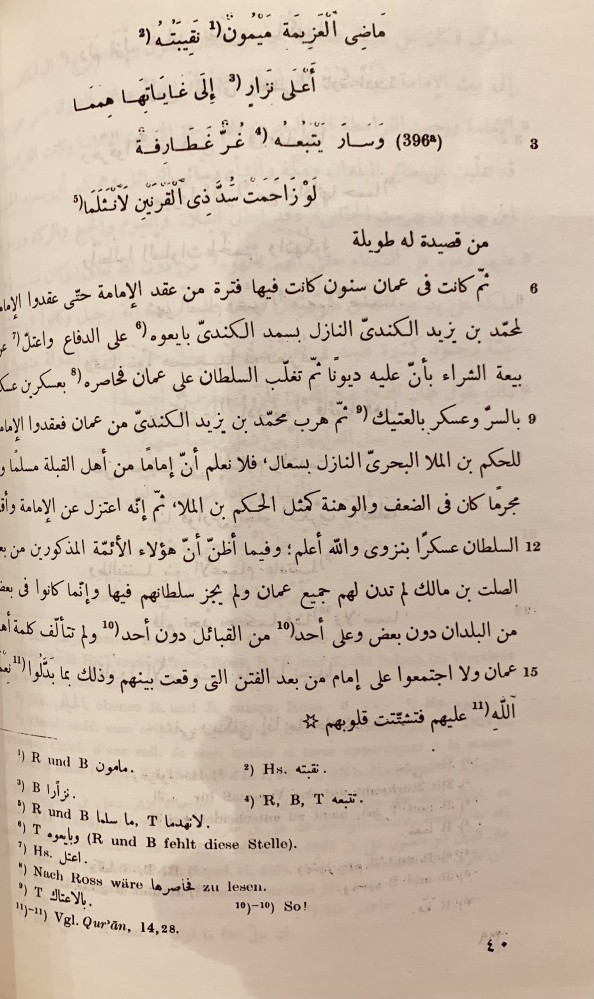 مَاضِى ٱلْعَزِيمَةِ مَيْمُونٌ(¹ نَقِيبَتُهُ (²
أَعْلَى نَزَارٍ (³ إِلَى غَايَاتِهَا هِمَمَا
3 (396ᵃ) وَسَارَ يَتْبَعُهُ (⁴ غُرٌّ غَطَارِفَةٌ
لَوْ زَاحَمَتْ سُدَّ ذِى ٱلْقَرْنَيْنِ لَٱنْثَلَمَا(⁵
من قصيدة له طويلة
6 ثمّ كانت فى عمان سنون كانت فيها فترة من عقد الإمامة حتّى عقدوا
لمحمّد بن يزيد الكندىّ النازل بسمد الكندىّ بايعوه (⁶ على الدفاع واعتلّ (⁷
بيعة الشراء بأنّ عليه ديونًا ثمّ تغلّب السلطان على عمان فحاصره (⁸ بعسكر بن
9 بالسرّ وعسكر بالعتيك (⁹ ثمّ هرب محمّد بن يزيد الكندىّ من عمان فعقدوا
للحكم بن الملا البحرىّ النازل بسعال، فلا نعلم أنّ إمامًا من أهل القبلة مسلمًا
مجرمًا كان فى الضعف والوهنة كمثل الحكم بن الملا، ثمّ إنّه اعتزل عن الإمامة
12 السلطان عسكرًا بنزوى والله أعلم؛ وفيما أظنّ أنّ هؤلاء الأئمّة المذكورين من
الصلت بن مالك لم تدن لهم جميع عمان ولم يجز سلطانهم فيها وإنّما كانوا فى
من البلدان دون بعض وعلى أحد(¹⁰ من القبائل دون أحد(¹⁰ ولم تتألّف كلمة
15 عمان ولا اجتمعوا على إمام من بعد الفتن التى وقعت بينهم وذلك بما بَدَّلُوا (¹¹
ٱللَّهِ (¹¹ عليهم فتشتّتت قلوبهم ☆
¹) R und B مامون. ²) Hs. نقبته.
³) B نزأرا. ⁴) R, B, T تتبعه.
⁵) R und B ما سلما, T لانهدما.
⁶) T وبايعوه (R und B fehlt diese Stelle).
⁷) Hs. اعتل.
⁸) Nach Ross wäre فخاصرها zu lesen.
⁹) T بالاعتاك. ¹⁰)-¹⁰) So!
¹¹)-¹¹) Vgl. Qur'ān, 14,28.
٤٠